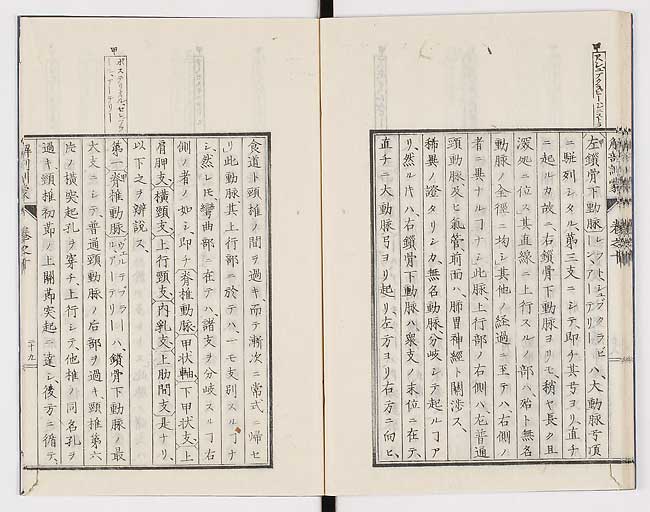 左鎖骨下動脈レフト、シュブクラビ
アン、アーテリーハ、大動脈弓頂
ニ駐列シタル、第三支ニシテ、即チ其弓ヨリ、直チ
ニ起ルカ故ニ、右鎖骨下動脈ヨリモ、稍ヤ長ク、且
深処ニ位ス其直線ニ上行スルノ部ハ、殆ト無名
動脈ノ全徑ニ均シ其他ノ経過ニ至テハ右側ノ
者ニ異ナルヿナシ此脈、上行部ノ右側ハ、左普通
頭動脈、及ヒ氣管、前面ハ、肺胃神経ト關渉ス、
稀異ノ證タリシカ、無名動脈、分岐シテ起ルヿア
リ、然ル片ハ、右鎖骨下動脈ハ、衆支ノ末位ニ在テ、
直チニ大動脈弓ヨリ起リ、左方ヨリ右方ニ向ヒ、
甲
食道ト頸椎ノ間ヲ過キ、而テ漸次ニ常式ニ帰セ
リ此動脈、其上行部ニ於テハ、一モ支別スルヿナ
シ、然レ𪜈、彎曲部ニ在テハ、諸支ヲ分岐スルヿ右
側ノ者ノ如シ、即チ脊椎動脈、甲状軸、下甲状支、上
肩胛支、横頸支、上行頸支、内乳支、上肋間支是ナリ、
以下之ヲ辨説ス、
第一脊椎動脈ヴェルテブラール、アーテリーハ、鎖骨下動脈ノ最
大支ニシテ、普通頸動脈ノ后部ヲ過キ、頸椎第六
片ノ横突起孔ヲ穿チ、上行シテ、他椎ノ同名孔ヲ
過キ、頸椎初節ノ上關節突起ニ達シ、後方ニ循テ、
甲
二十九